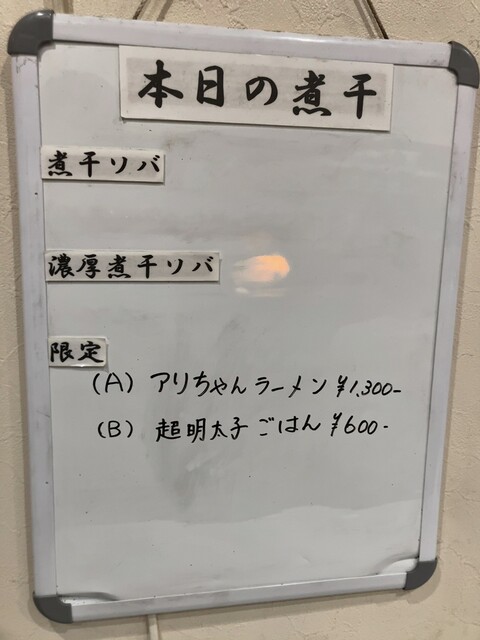 本日の煮干
煮干ソバ
濃厚煮干ソバ
限定
(A) アリちゃんラーメン ¥1,300-
(B) 超明太子ごはん ¥600-